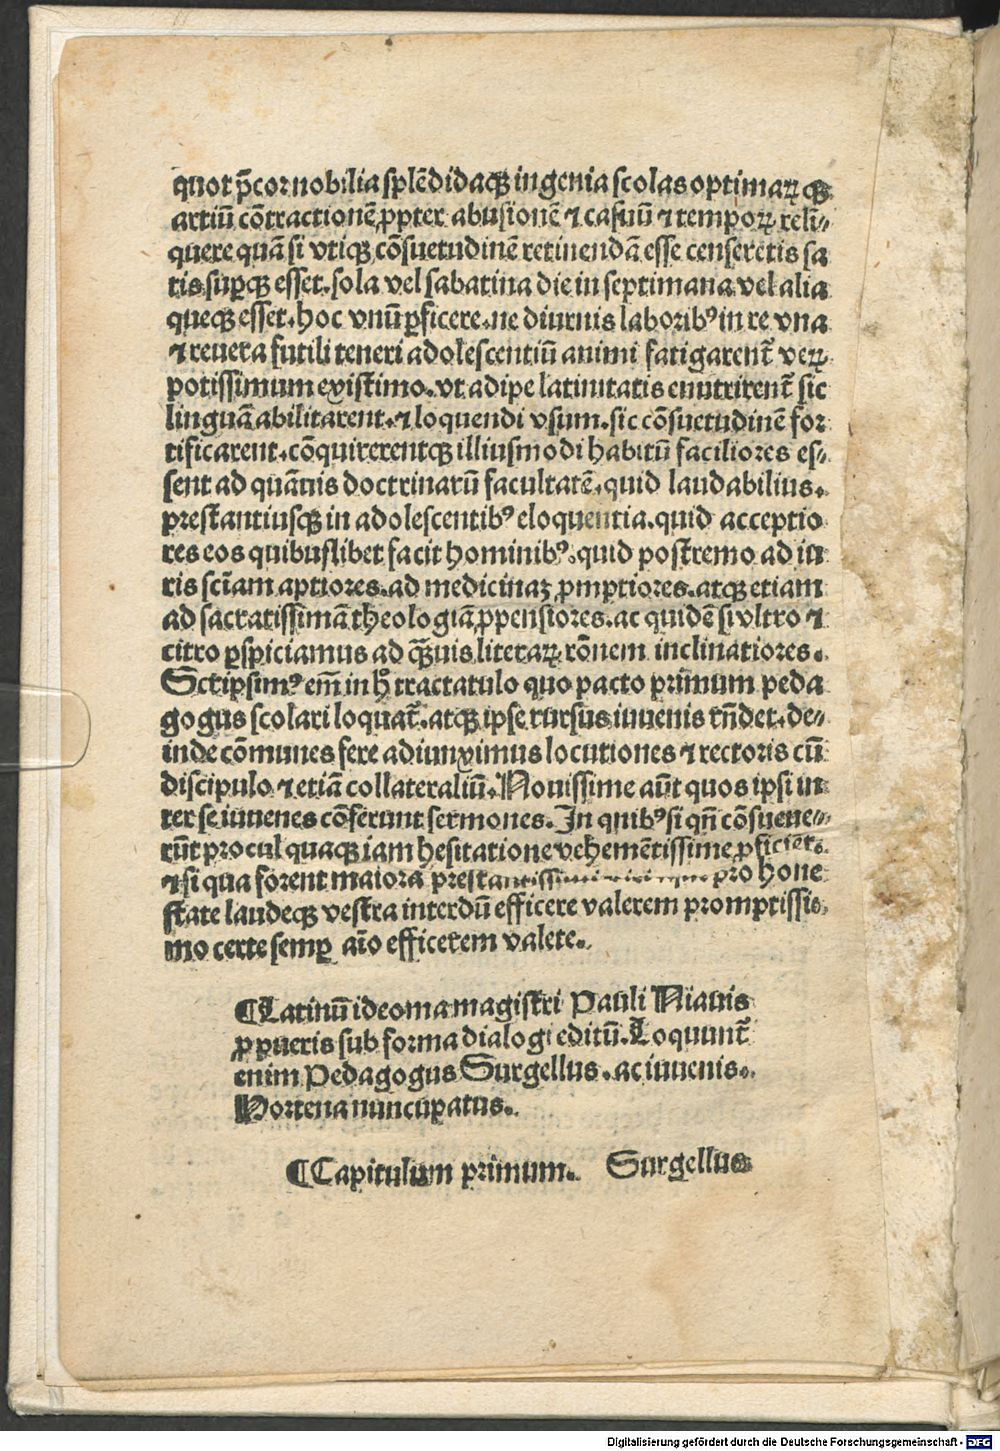 quot p̄cor nobilia splēdidaqꝫ ingenia scolas optimaꝝqꝫ
artiū cōtractionē ꝓpter abusionē ⁊ casuū ⁊ tempoꝝ reli⸗
quere quā si vtiqꝫ cōsuetudinē retinendā esse censeretis sa
tis suꝑqꝫ esset. sola vel sabatina die in septimana vel alia
queqꝫ esset. hoc vnū ꝑficere. ne diurnis laboribꝰ in re vna
⁊ reuera futili teneri adolescentiū animi fatigarent᷑ veꝝ
potissimum existimo. vt adipe latinitatis enutrirent᷑ sic
linguā abilitarent. ⁊ loquendi vsum. sic cōsuetudinē for
tificarent. cōquirerentqꝫ illiusmodi habitū faciliores es⸗
sent ad quāuis doctrinarū facultatē. quid laudabilius.
prestantiusqꝫ in adolescentibꝰ eloquentia. quid acceptio
res eos quibuslibet facit hominibꝰ. quid postremo ad iu
ris sciam aptiores. ad medicinaꝫ ꝓmptiores. atqꝫ etiam
ad sacratissimā theologiā ꝓpensiores. ac quidē si vltro ⁊
citro ꝑspiciamus ad quāuis literaꝝ rōnem inclinatiores.
Scripsimꝰ em̄ in hͦ tractatulo quo pacto primum peda
gogus scolari loquat᷑. atqꝫ ipse rursus iuuenis rn̄det. de⸗
inde cōmunes fere adiunximus locutiones ⁊ rectoris cū
discipulo ⁊ etiā collateraliū. Nouissime aūt quos ipsi in
ter se iuuenes cōferunt sermones. In quibꝰ si qn̄ cōsueue⸗
rūt procul quaqꝫ iam hesitatione vehemētissime ꝓficiēt.
⁊ si qua forent maiora pro hone
state laudeqꝫ vestra interdū efficere valerem promptissi⸗
mo certe semꝑ aīo efficerem valete.
¶ Latinū ideoma magistri Pauli Niauis
ꝓ pueris sub forma dialogi editū. Loquunt᷑
enim Pedagogus Surgellus. ac iuuenis.
Nortena nuncupatus.
¶ Capitulum primum. Surgellus
Digitalisierung gefördert durch die Deutsche Forschungsgemeinschaft - DFG